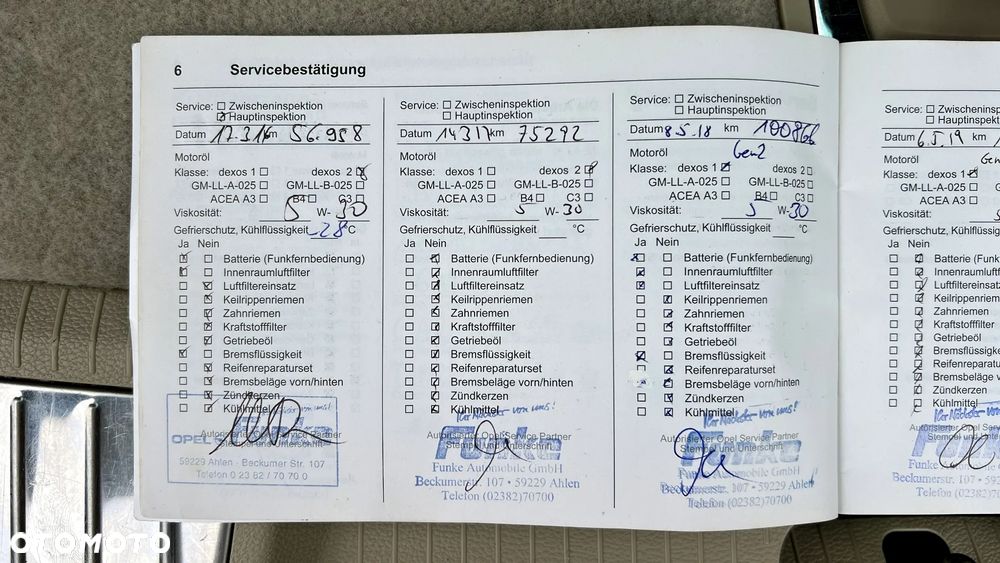 6 Servicebestätigung
Service: Zwischeninspektion
Hauptinspektion
Datum 17.3.16 km 56.958
Motoröl
Klasse: dexos 1 dexos 2
GM-LL-A-025 GM-LL-B-025
ACEA A3 B4 C3
Viskosität: 5 W- 30
Gefrierschutz, Kühlflüssigkeit -28 °C
Ja Nein
Batterie (Funkfernbedienung)
Innenraumluftfilter
Luftfiltereinsatz
Keilrippenriemen
Zahnriemen
Kraftstofffilter
Getriebeöl
Bremsflüssigkeit
Reifenreparaturset
Bremsbeläge vorn/hinten
Zündkerzen
Kühlmittel
59229 Ahlen - Beckumer Str. 107
Telefon 0 23 82 / 70 70 0
Service: Zwischeninspektion
Hauptinspektion
Datum 14.3.17 km 75292
Motoröl
Klasse: dexos 1 dexos 2
GM-LL-A-025 GM-LL-B-025
ACEA A3 B4 C3
Viskosität: 5 W- 30
Gefrierschutz, Kühlflüssigkeit °C
Ja Nein
Batterie (Funkfernbedienung)
Innenraumluftfilter
Luftfiltereinsatz
Keilrippenriemen
Zahnriemen
Kraftstofffilter
Getriebeöl
Bremsflüssigkeit
Reifenreparaturset
Bremsbeläge vorn/hinten
Zündkerzen
Kühlmittel
Ihr Nächster von uns!
Autorisierter Opel Service Partner
Stempel und Unterschrift
Funke
Funke Automobile GmbH
Beckumerstr. 107 • 59229 Ahlen
Telefon (02382)70700
Service: Zwischeninspektion
Hauptinspektion
Datum 8.5.18 km 100866
Motoröl Gen2
Klasse: dexos 1 dexos 2
GM-LL-A-025 GM-LL-B-025
ACEA A3 B4 C3
Viskosität: 5 W- 30
Gefrierschutz, Kühlflüssigkeit °C
Ja Nein
Batterie (Funkfernbedienung)
Innenraumluftfilter
Luftfiltereinsatz
Keilrippenriemen
Zahnriemen
Kraftstofffilter
Getriebeöl
Bremsflüssigkeit
Reifenreparaturset
Bremsbeläge vorn/hinten
Zündkerzen
Kühlmittel
Ihr Nächster von uns!
Autorisierter Opel Service Partner
Stempel und Unterschrift
Funke
Funke Automobile GmbH
Beckumerstr. 107 • 59229 Ahlen
Telefon (02382)70700
Service:
Datum 6.5.19 km
Motoröl
Klasse: dexos 1
GM-LL-A-025
ACEA A3
Viskosität:
Gefrierschutz, Kühlflüssigk
Ja Nein
Batterie (Funk
Innenraumluftf
Luftfiltereinsatz
Keilrippenrieme
Zahnriemen
Kraftstofffilter
Getriebeöl
Bremsflüssigke
Reifenreparatu
Bremsbeläge v
Zündkerzen
Kühlmittel
Ihr Nächster von
Autorisierter Opel Servi
Stempel und Unter
Funke Automobile
Beckumerstr. 107 • 592
Telefon (02382)70
OTOMOTO